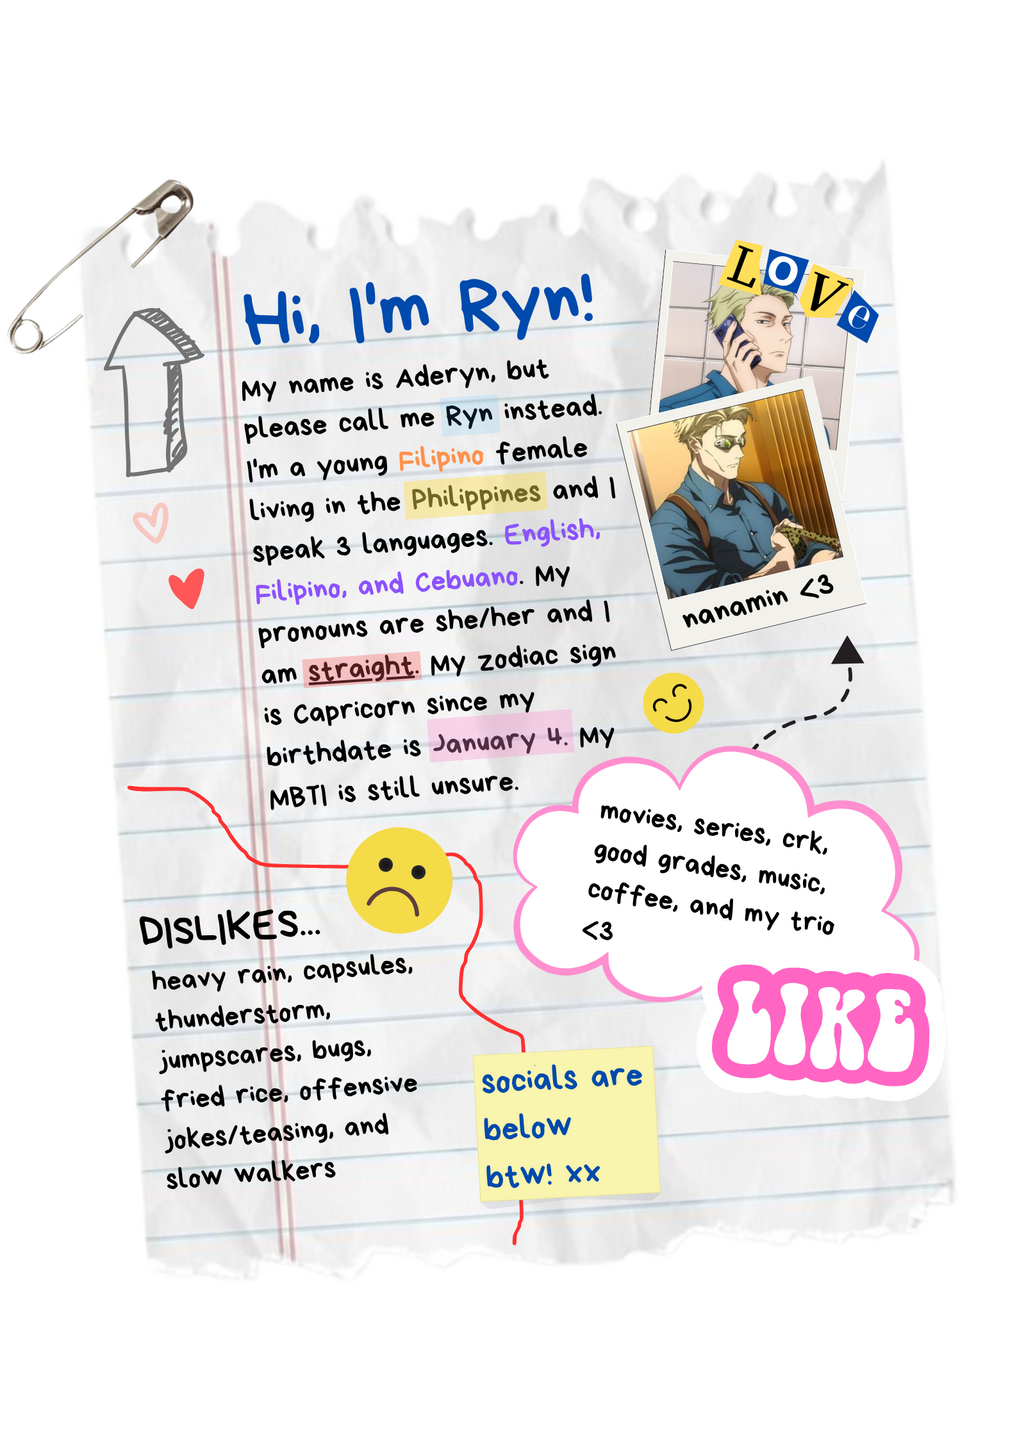 Hi, I'm Ryn!
My name is Aderyn, but
please call me Ryn instead.
I'm a young Filipino female
living in the Philippines and I
speak 3 languages. English,
Filipino, and Cebuano. My
pronouns are she/her and I
am straight. My zodiac sign
is Capricorn since my
birthdate is January 4. My
MBTI is still unsure.
LOVe
nanamin <3
movies, series, crk,
good grades, music,
coffee, and my trio
<3
LIKE
DISLIKES...
heavy rain, capsules,
thunderstorm,
jumpscares, bugs,
fried rice, offensive
jokes/teasing, and
slow walkers
socials are
below
btw! xx